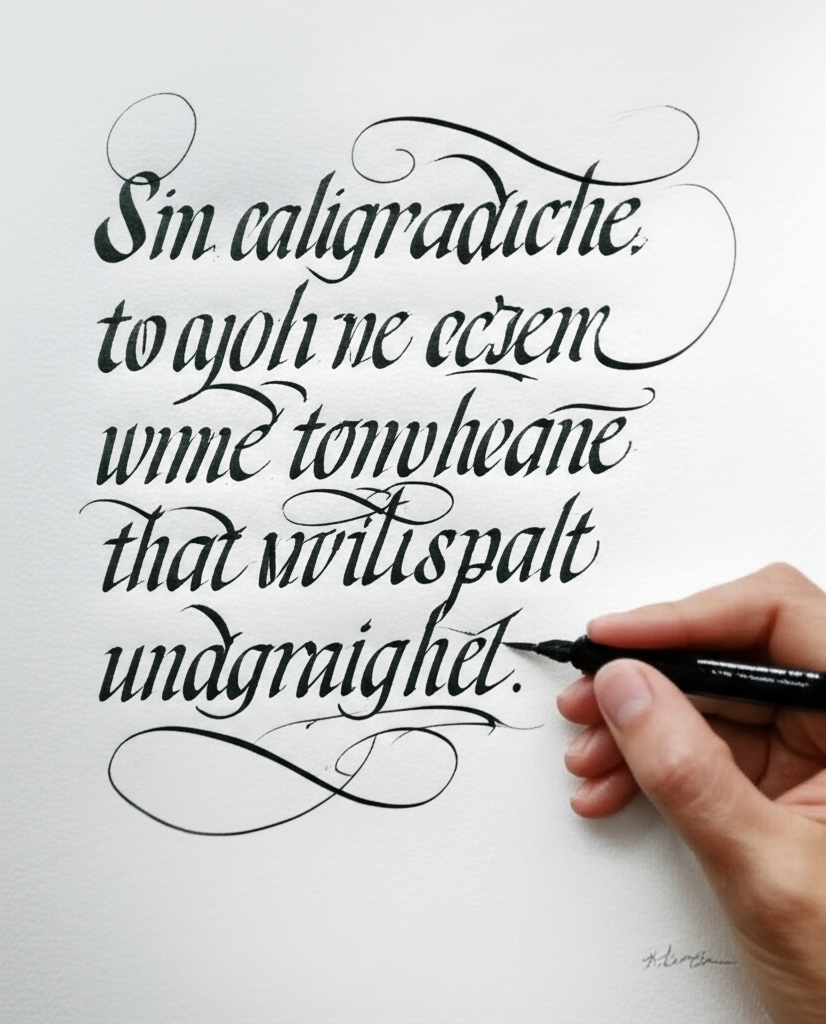 Sin caligraduche.
to ajoh ne eczem
wime tomvheane
that uvilispalt
undgraighel.